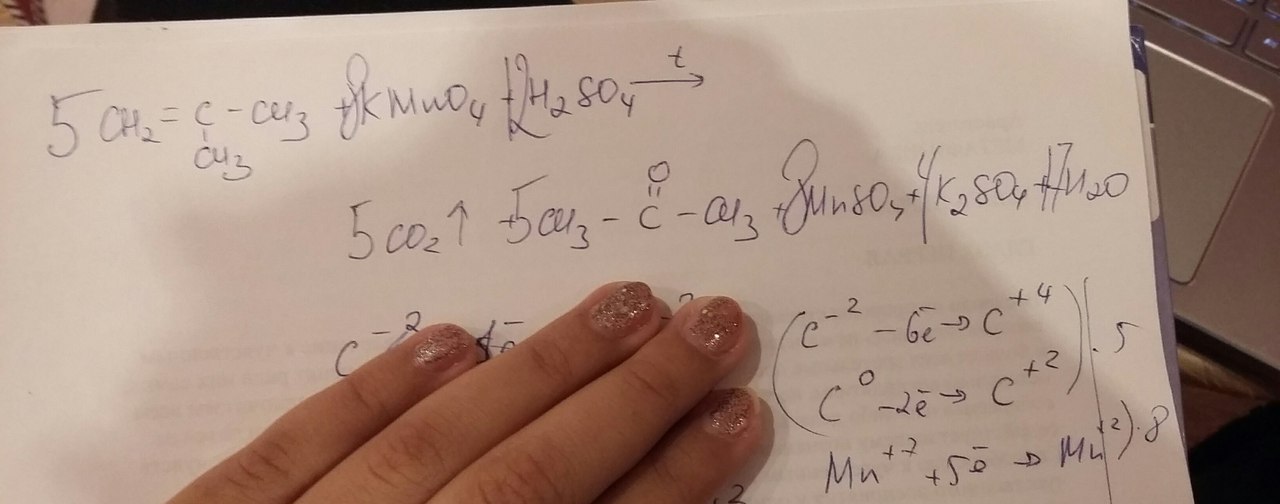 5CH₂=C-CH₃ + 8KMnO₄ + 12H₂SO₄ →ᵗ
CH₃
O
5CO₂↑ + 5CH₃-C-CH₃ + 8MnSO₄ + 4K₂SO₄ + 17H₂O
C⁻²
(C⁻² - 6ē → C⁺⁴
C⁰ - 2ē → C⁺²) | .5
Mn⁺⁷ + 5ē → Mn⁺²) .8